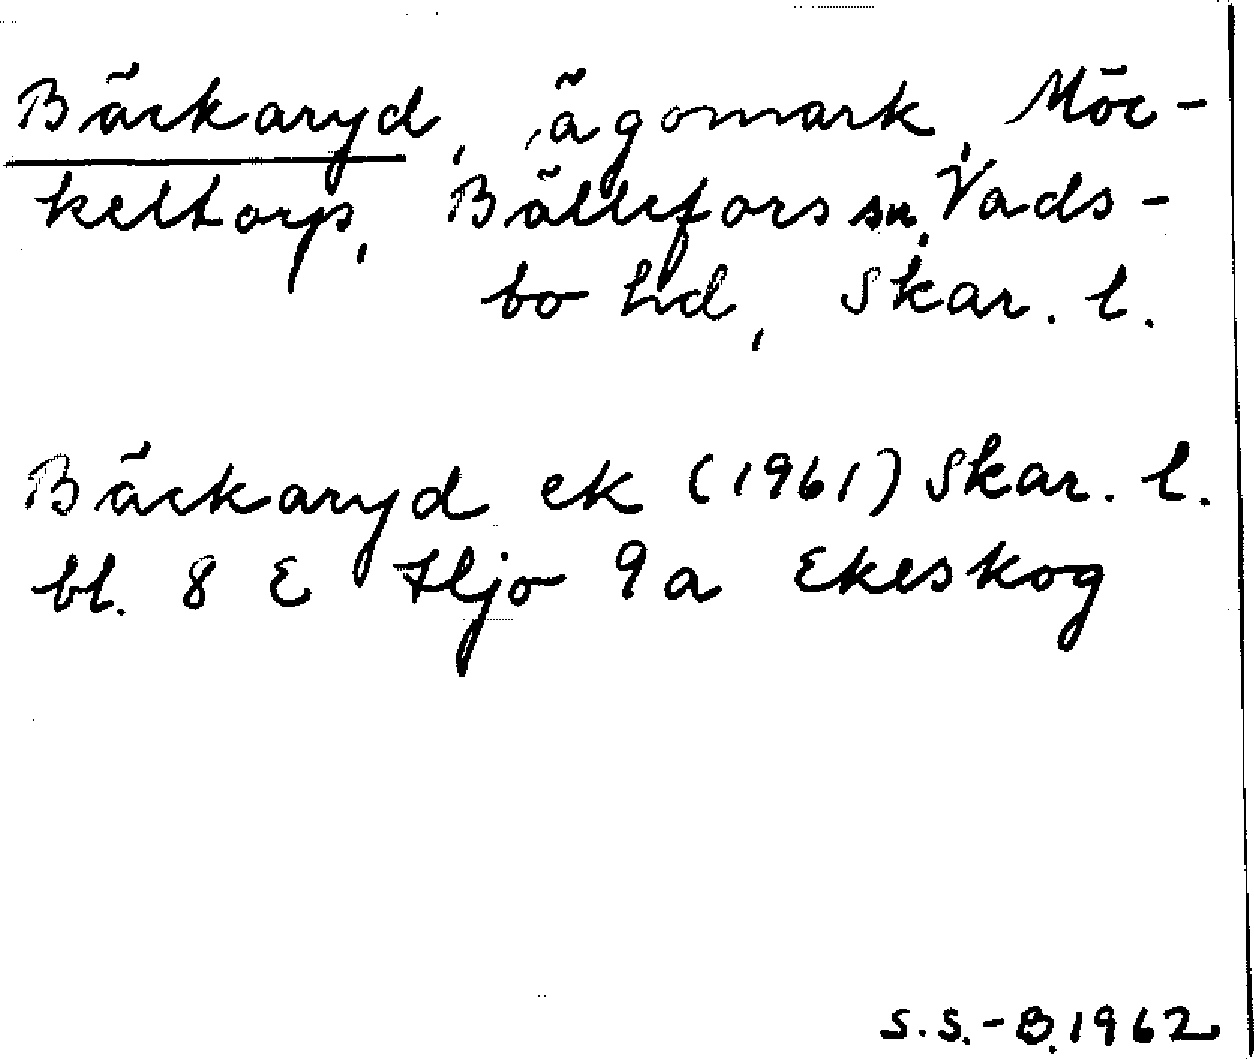 Bäckaryd, ägomark, Möc-
keltorp, Bällefors sn, Vads-
bo hd, Skar. l.
Bäckaryd ek (1961) Skar. l.
bl. 8 E Hjo 9a Ekeskog
S.S.-B. 1962